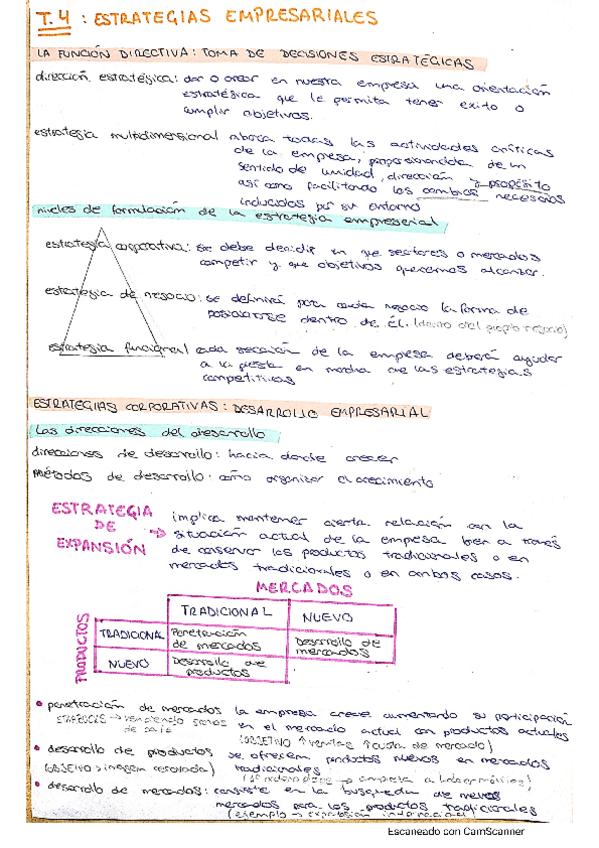 T.4 : ESTRATEGIAS EMPRESARIALES
LA FUNCIÓN DIRECTIVA: TOMA DE DECISIONES ESTRATÉGICAS
dirección estratégica: dar o crear en nuestra empresa una orientación
estratégica que le permita tener exito o
cumplir objetivos.
estrategia multidimensional abarca todas las actividades críticas
de la empresa, proporcionando de un
sentido de unidad, dirección y propósito
así como facilitando los cambios necesarios
inducidos por su entorno
niveles de formulación de la estrategia empresarial
estrategia corporativa: se debe decidir en que sectores o mercados
competir y que objetivos queremos alcanzar.
estrategia de negocio: se definirá para cada negocio la forma de
posicionarse dentro de él. (dentro del propio negocio)
estrategia funcional cada sección de la empresa deberá ayudar
a la puesta en marcha de las estrategias
competitivas
ESTRATEGIAS CORPORATIVAS: DESARROLLO EMPRESARIAL
Las direcciones del desarrollo
direcciones de desarrollo: hacia donde crecer
métodos de desarrollo: cómo organizar el crecimiento
ESTRATEGIA
DE
EXPANSIÓN
implica mantener cierta relación con la
situación actual de la empresa bien a través
de conservar los productos tradicionales o en
mercados tradicionales o en ambos casos.
MERCADOS
TRADICIONAL NUEVO
PRODUCTOS
TRADICIONAL Penetración de mercados Desarrollo de mercados
NUEVO Desarrollo de productos
• penetración de mercados la empresa crece aumentando su participación
en el mercado actual con productos actuales
(OBJETIVO ↑ ventas ↑ cuota de mercado)
• desarrollo de productos se ofrecen productos nuevos en mercados
tradicionales
(OBJETIVO > imagen renovada)
• desarrollo de mercados: consiste en la busqueda de nuevos
mercados para los productos tradicionales
(ejemplo → expansión internacional)
Escaneado con CamScanner